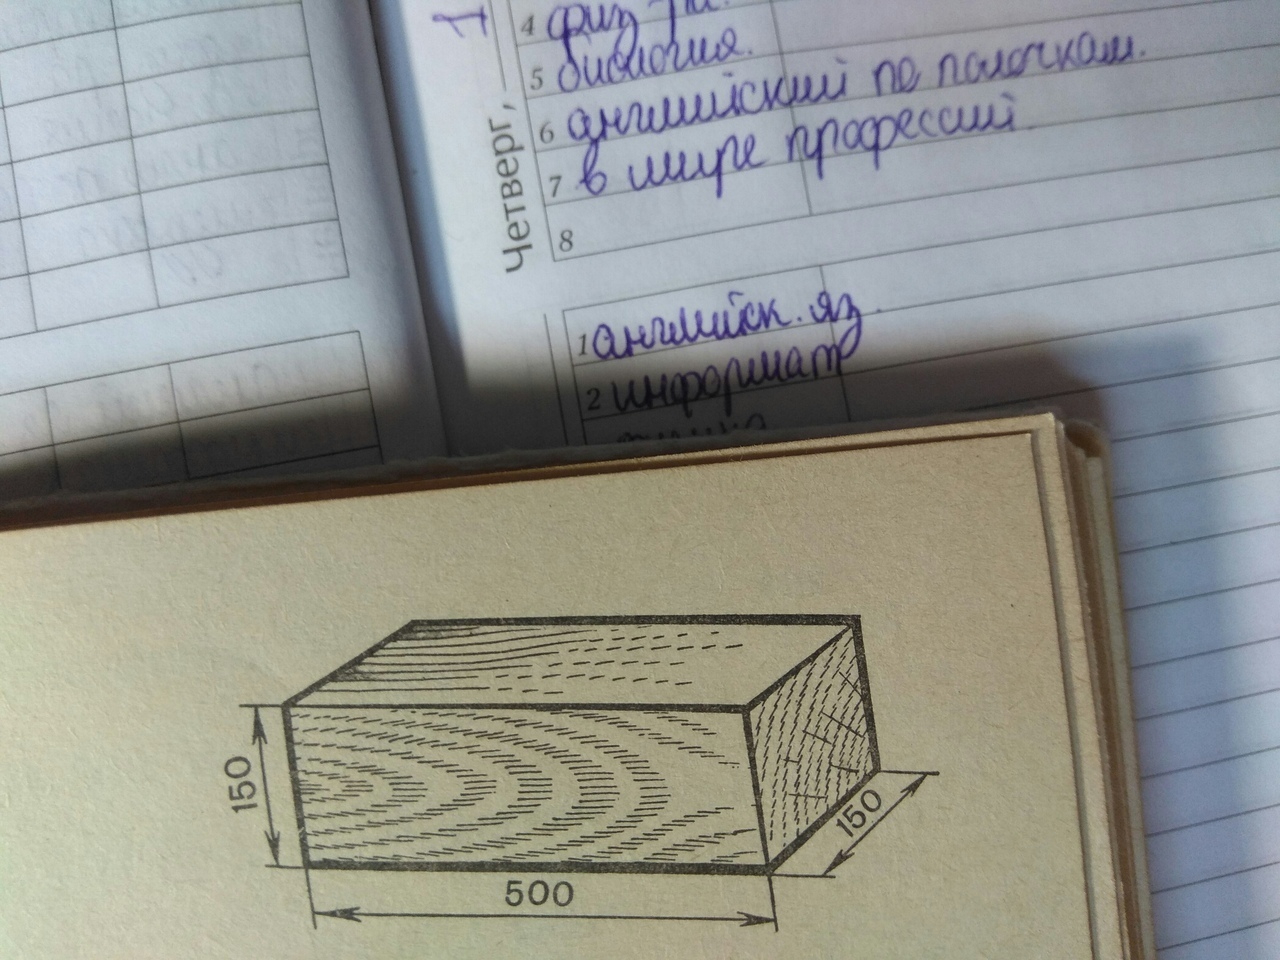 Четверг,
4 физ
5 биология.
6 английский по полочкам.
7 в мире профессий.
8
1 английск. яз.
2 информат
150
500
150